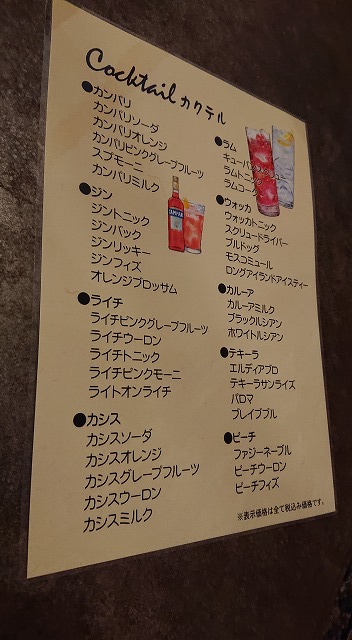 Cocktail カクテル
●カンパリ
カンパリソーダ
カンパリオレンジ
カンパリピンクグレープフルーツ
スプモーニ
カンパリミルク
●ジン
ジントニック
ジンバック
ジンリッキー
ジンフィズ
オレンジブロッサム
●ライチ
ライチピンクグレープフルーツ
ライチウーロン
ライチトニック
ライチピンクモーニ
ライトオンライチ
●カシス
カシスソーダ
カシスオレンジ
カシスグレープフルーツ
カシスウーロン
カシスミルク
●ラム
ラムトニック
ラムコーク
●ウォッカ
ウォッカトニック
スクリュードライバー
ブルドッグ
モスコミュール
ロングアイランドアイスティー
●カルーア
カルーアミルク
ブラックルシアン
ホワイトルシアン
●テキーラ
エルディアブロ
テキーラサンライズ
パロマ
ブレイブブル
●ピーチ
ファジーネーブル
ピーチウーロン
ピーチフィズ
※表示価格は全て税込み価格です。
CAMPARI